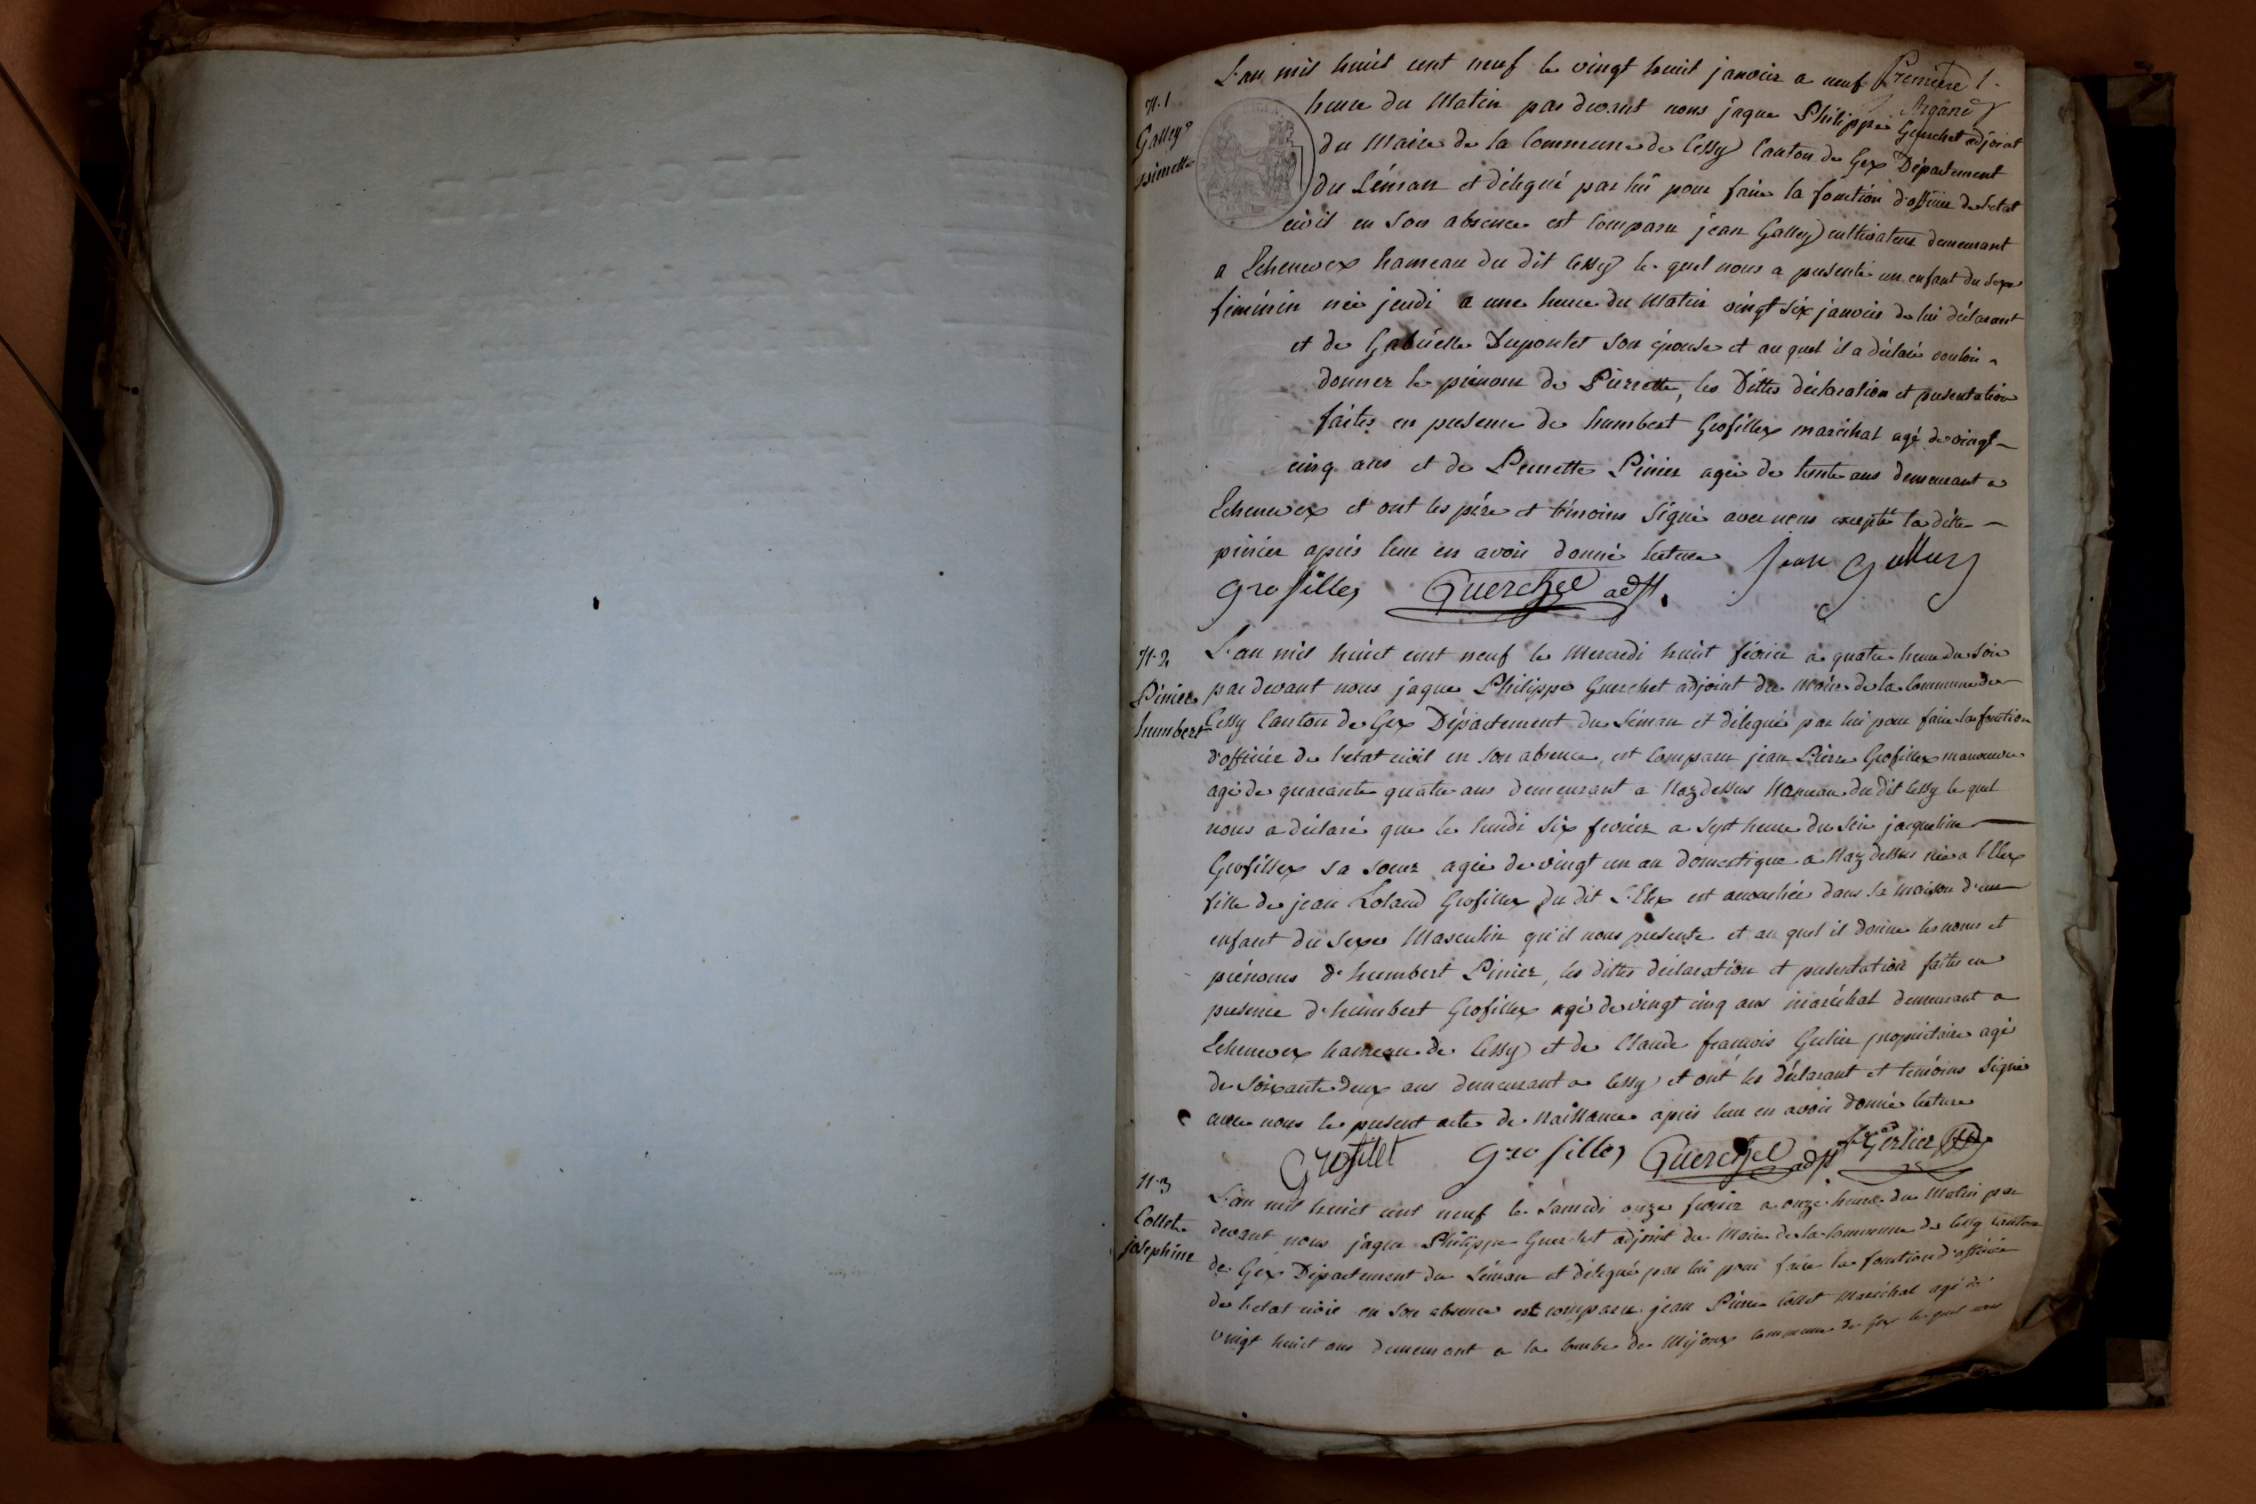 Première 1.
Argand
N. 1
Galley
L'an mil huict cent neuf le vingt huit janvier a neuf
heure du Matin par devant nous jaque Philippe Guerchet adjoint
du Maire de la Commune de Cessy Canton de Gex Département
du Léman et délégué par lui pour faire la fonction d'officier de l'etat
civil en son absence est comparu jean Galley cultivateur demeurant
a Echenevex hameau du dit Cessy le quel nous a presenté un enfant du sexe
féminin née jeudi a une heure du Matin vingt six janvier de lui déclarant
et de Gabrielle Dupontet son épouse et au quel il a déclaré vouloir
donner le prénom de Pierrette, les Dittes déclaration et presentation
faites en presence de humbert Grosfillex maréchal agé de vingt
cinq ans et de Pernette Pinier agée de trente ans demeurant a
Echenevex et ont les père et témoins signé avec nous excepté la ditte
pinier après leur en avoir donné lecture Jean Galley
Grosfillex Guerchet adjt.
N. 2
Pinier
humbert
L'an mil huict cent neuf le Mercredi huit février a quatre heure du Soir
par devant nous jaque Philippe Guerchet adjoint du Maire de la Commune de
Cessy Canton de Gex Département du Léman et délégué par lui pour faire la fonction
d'officier de l'etat civil en son absence, est comparu jean Pierre Grosfillex manoeuvre
agé de quarante quatre ans demeurant a Naz dessus Hameau du dit Cessy le quel
nous a déclaré que le lundi six fevrier a sept heure du soir jaqueline
Grosfillex sa soeur agée de vingt un an domestique a Naz dessus née a l'Elex
fille de jean Roland Grosfillex du dit L'Elex est accouchée dans sa maison d'un
enfant du sexe Masculin qu'il nous presente et au quel il donne les noms et
prénoms d'humbert Pinier, les dittes déclaration et presentation faites en
presence d'humbert Grosfillex agé de vingt cinq ans maréchal demeurant a
Echenevex hameau de Cessy et de Claude francois Gerlier propriétaire agé
de soixante deux ans demeurant a Cessy et ont les déclarant et témoins signé
avec nous le present acte de naissance après leur en avoir donné lecture
Grosfilet Grosfillex Guerchet adjt Gerlier
N. 3
Collet
josephine
L'an mil huict cent neuf le Samedi onze fevrier a onze heure du Matin par
devant nous jaque Philippe Guerchet adjoint du Maire de la Commune de Cessy canton
de Gex Département du Léman et délégué par lui pour faire la fonction d'officier
de l'etat civil en son absence est comparu jean Pierre Collet Maréchal agé de
vingt huict ans demeurant a la combe de Mijoux commune de Gex le quel nous